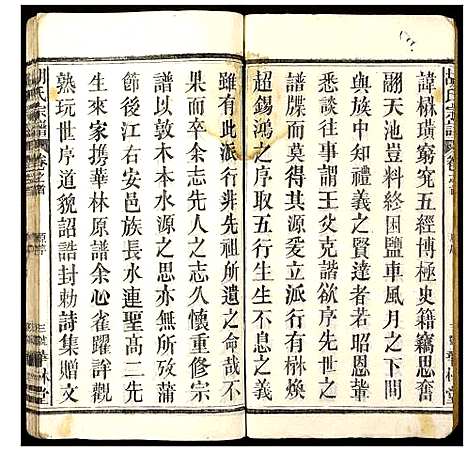 胡氏宗譜 卷之首 華林堂
諱璜窮究五經博極史籍竊思奮
翮天池豈料終困鹽車風月之下間
與族中知禮義之賢達者若昭恩輩
悉談往事謂王父克諧欲序先世之
譜牒而莫得其源爰立派行有楙煥
超錫鴻之序取五行生生不息之義
雖有此派行非先祖所遺之命哉不
果而卒余志先人之志久懷重修宗
譜以敦木本水源之思亦無所攷蒲
節後江右安邑族長水連聖高二先
生來家携華林原譜余心雀躍詳觀
熟玩世序道貌詔誥封勅詩集贈文
胡氏宗譜 卷之首 原序 三 華林堂